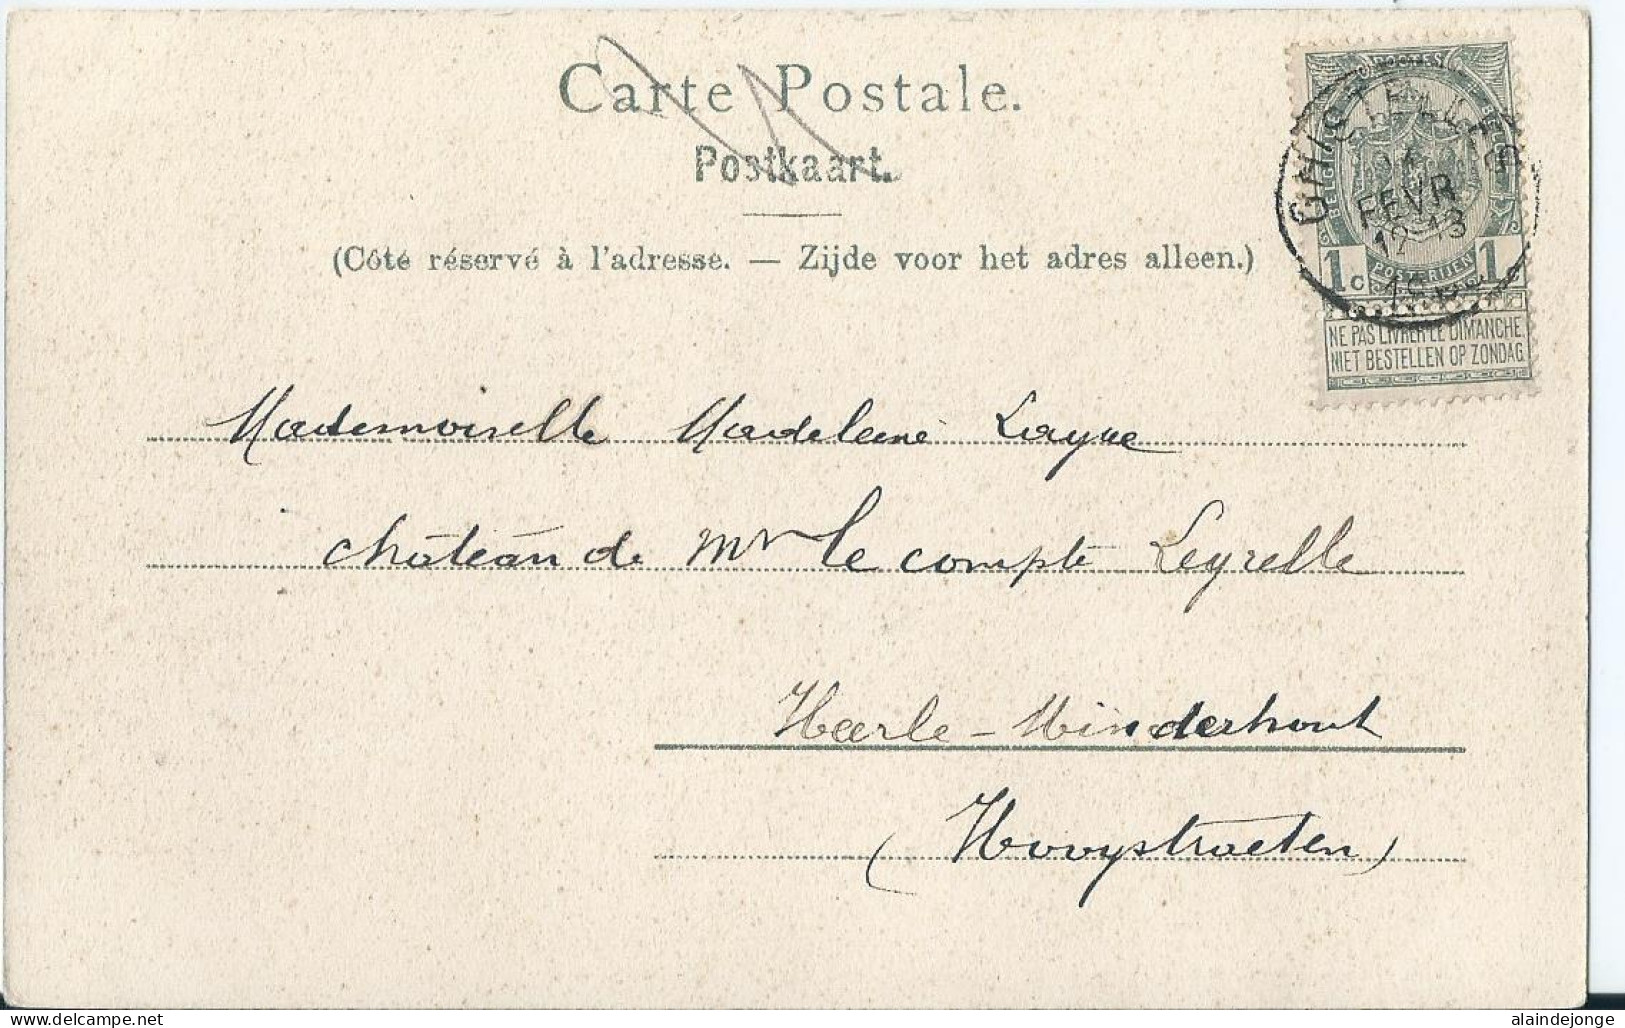 Carte Postale.
Postkaart.
(Côté réservé à l'adresse. — Zijde voor het adres alleen.)
POSTES
BELGIQUE BELGIË
1c POSTERIJEN 1c
NE PAS LIVRER LE DIMANCHE
NIET BESTELLEN OP ZONDAG
GHISTELLES
FEVR
12-13
Mademoiselle Madeleine
château de Mr le compte
Heerle-Minderhout
(Hoovystraeten)
delcampe.net
alaindejonge